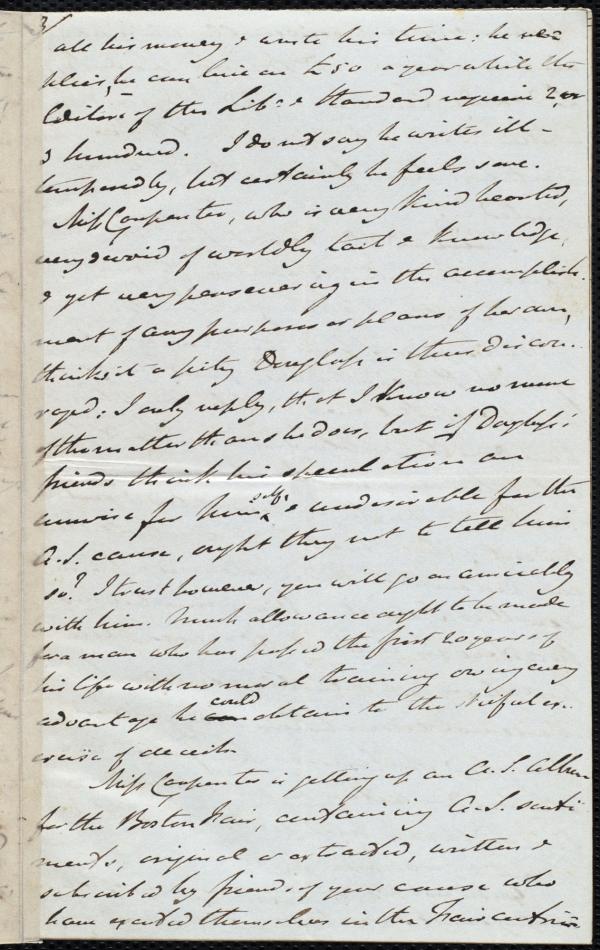 3/
all his money & waste his time: he re-
plies, he can live on £50 a year while the
Editors of the Lib: & Standard require 2, or
3 hundred. I do not say he writes ill-
temperedly, but certainly he feels sore.
Miss Carpenter, who is very kind hearted,
very devoid of worldly tact & knowledge,
& yet very persevering in the accomplish-
ment of any purposes or plans of her own,
thinks it a pity Douglass is thus discou-
raged: I only reply, that I know no more
of the matter than she does, but if Douglass'
friends think his speculation an
unwise for himself & undesirable for the
A.S. cause, ought they not to tell him
so? I trust however, you will go on amicably
with him. Much allowance ought to be made
for a man who has passed the first 20 years of
his life with no moral training owing every
advantage he can could obtain to the skilful ex-
ercise of deceit.
Miss Carpenter is getting up an A.S. Album
for the Boston Fair, containing A.S. senti
ments, original or extracted, written &
subscribed by friends of your cause who
have exerted themselves in the Fair